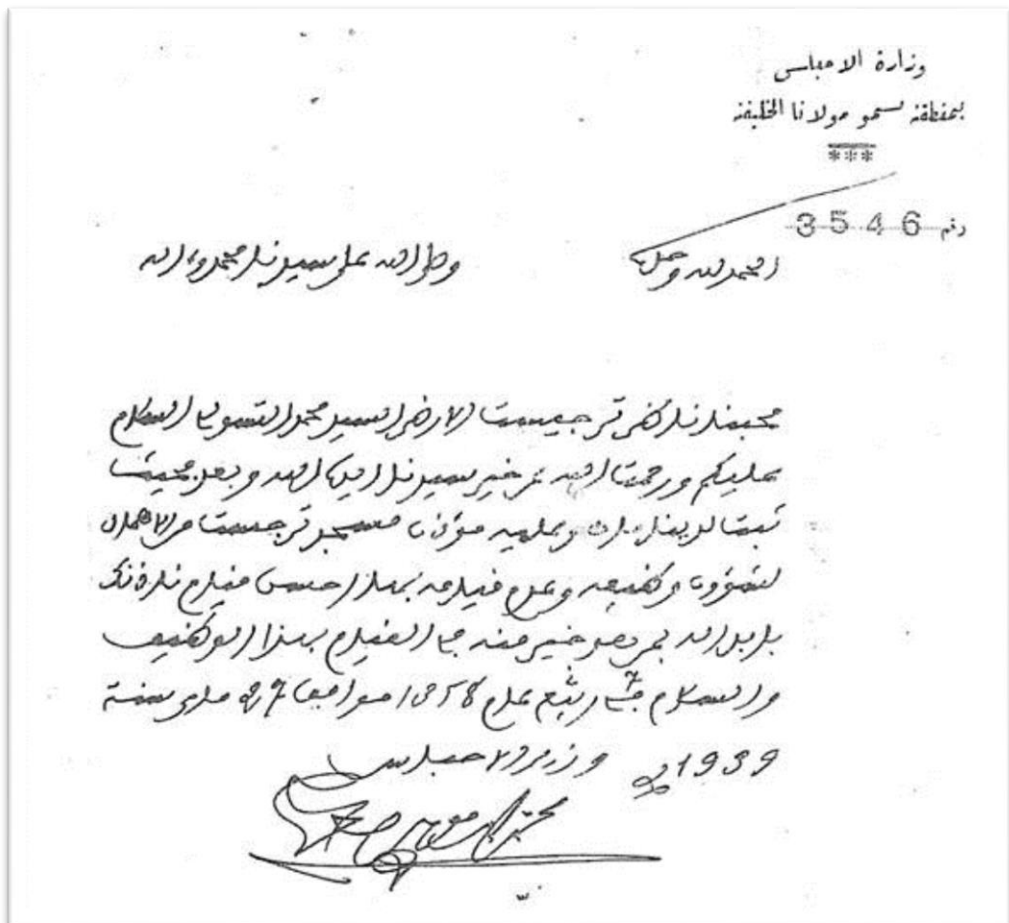 وزارة الاحباس
بمنطقة سمو مولانا الخليفة
***
رقم 3546
الحمد لله وحده
وصلى الله على سيدنا محمد وءاله
محبنا ناظر ترجيست الارضى السيد محمد السلام
عليكم ورحمت الله عن خير سيدنا ايده الله وبعد فحيث
ثبت لدينا ما عليه مؤذن مسجد ترجيست من الاهمال
لشؤون وظيفه وعدم قيامه بها احسن قيام ناذنك
بابداله بمن هو خير منه في القيام بهذا الوظيف
والسلام في 7 ربيع عام 1358 موافق 27 ماي سنة
1939
وزير الاحباس